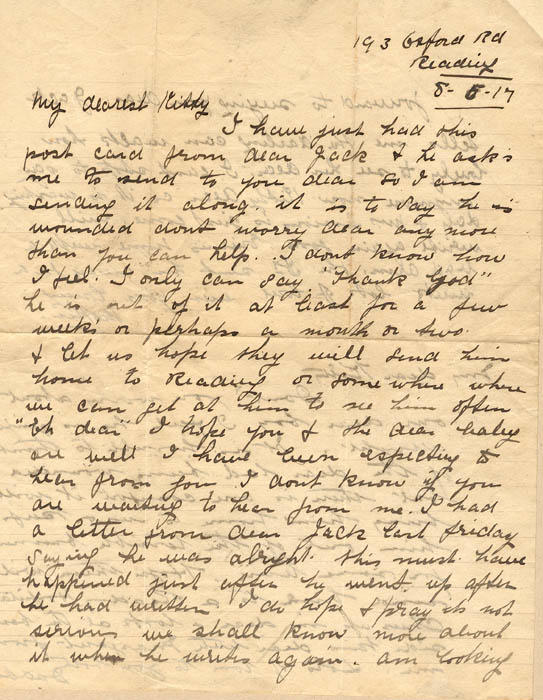 193 Oxford Rd
Reading
8-5-17
My dearest Kitty
I have just had this
post card from dear Jack & he ask's
me to send to you dear so I am
sending it along. it is to say he is
wounded dont worry dear any more
than you can help. I dont know how
I feel. I only can say "Thank God"
he is out of it at least for a few
weeks or perhaps a month or two.
& let us hope they will send him
home to Reading or somewhere where
we can get at him to see him often
"Eh dear" I hope you & the dear baby
are well I have been expecting to
hear from you I dont know if you
are waiting to hear from me. I had
a letter from dear Jack last friday
saying he was alright. this must have
happened just after he went up after
he had written I do hope & pray its not
serious we shall know more about
it when he writes again. am looking